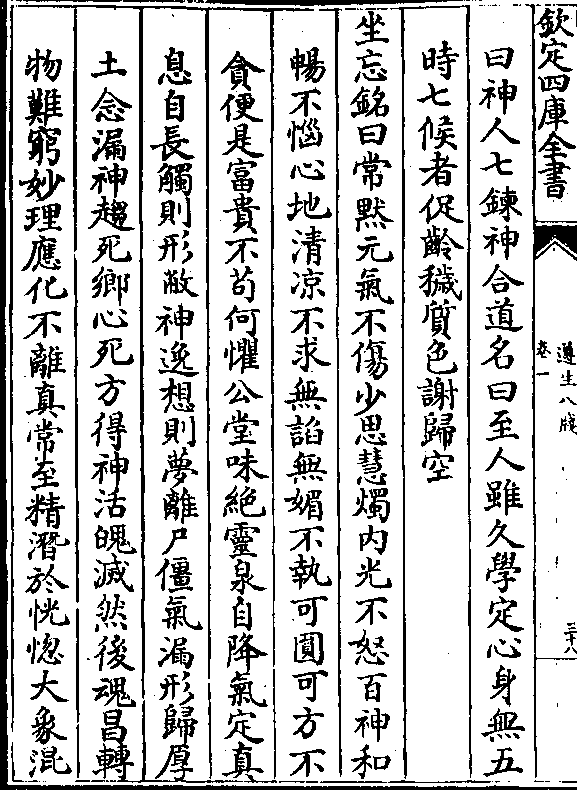 欽定四庫全書
遵生八牋
卷一
三十八
曰神人七鍊神合道名曰至人雖久學定心身無五
時七候者促齡穢質色謝歸空
坐忘銘曰常黙元氣不傷少思慧燭内光不怒百神和
暢不惱心地清凉不求無諂無媚不執可圓可方不
貪便是富貴不苟何懼公堂味絶靈泉自降氣定真
息自長觸則形敝神逸想則夢離尸僵氣漏形歸厚
土念漏神趨死鄉心死方得神活魄滅然後魂昌轉
物難窮妙理應化不離真常至精潛於恍惚大象混